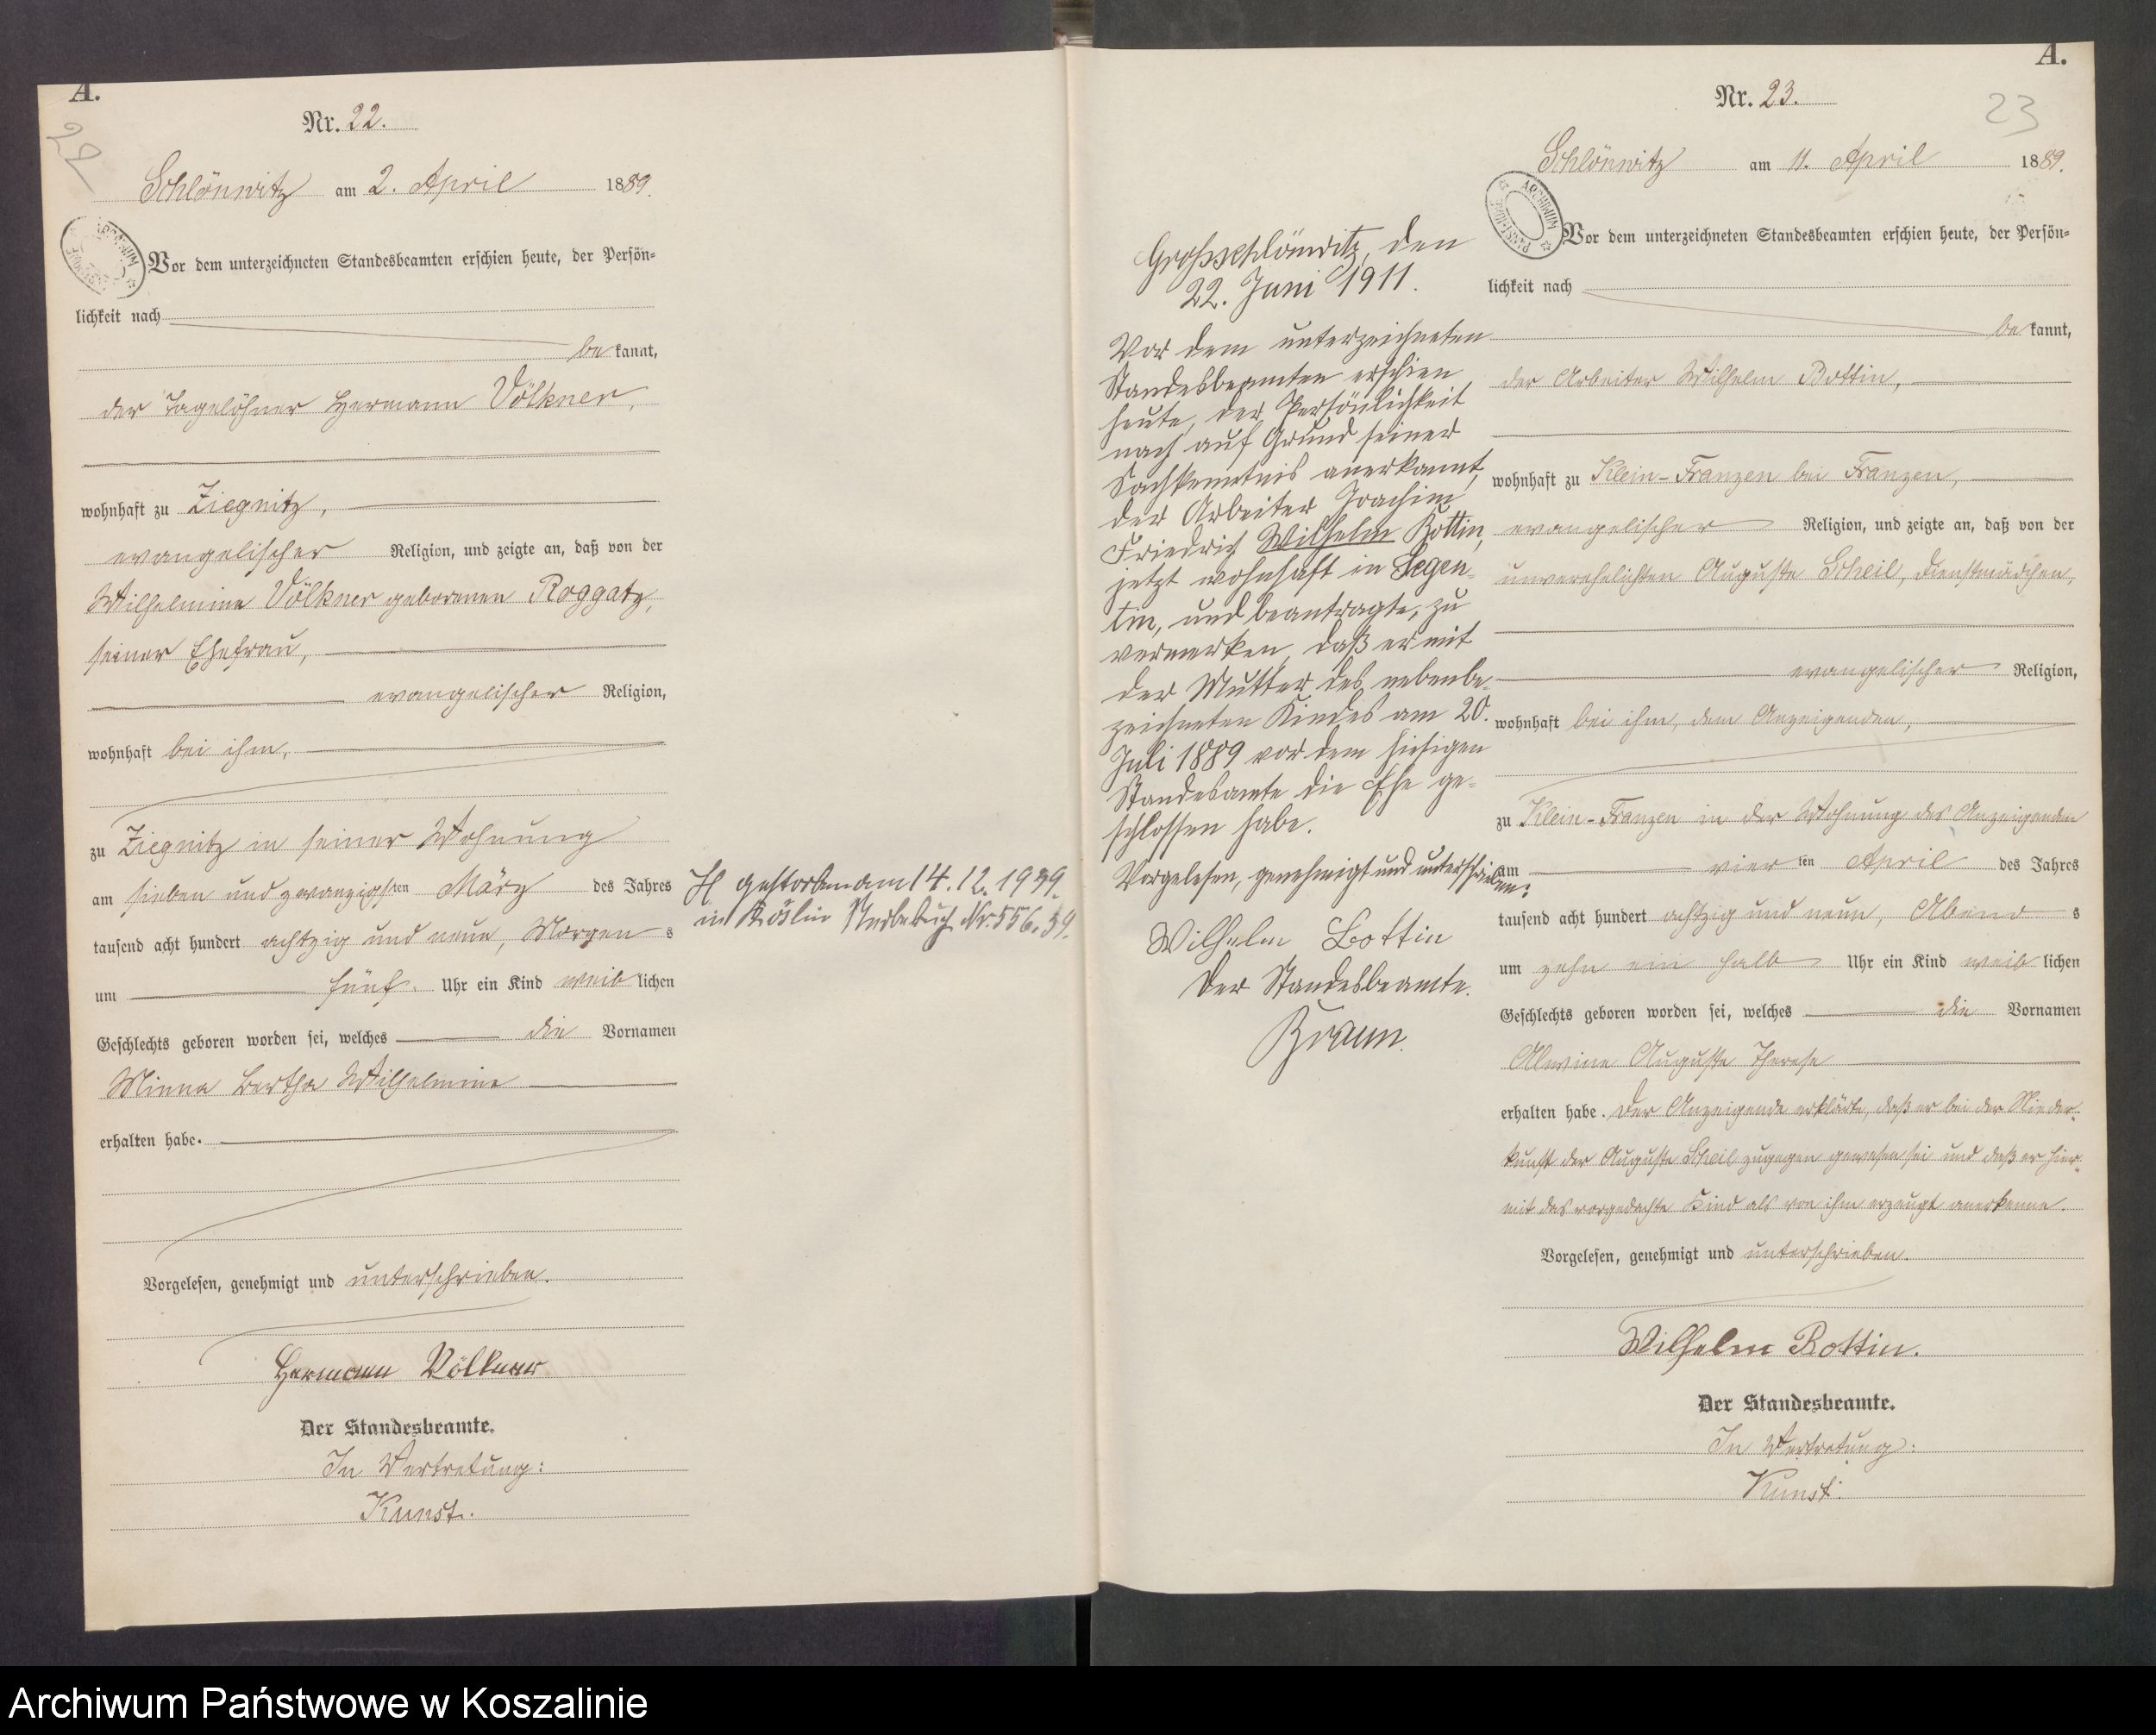 A.
22
Nr. 22.
Schlönwitz am 2. April 1889.
Vor dem unterzeichneten Standesbeamten erschien heute, der Persön-
lichkeit nach
bekannt,
der Tagelöhner Hermann Völkner,
wohnhaft zu Ziegnitz,
evangelischer Religion, und zeigte an, daß von der
Wilhelmine Völkner geborenen Roggatz,
seiner Ehefrau,
evangelischer Religion,
wohnhaft bei ihm,
zu Ziegnitz in seiner Wohnung
am sieben und zwanzigsten März des Jahres
tausend acht hundert achtzig und neun, Morgens
um fünf Uhr ein Kind weiblichen
Geschlechts geboren worden sei, welches die Vornamen
Minna Bertha Wilhelmine
erhalten habe.
Vorgelesen, genehmigt und unterschrieben.
Hermann Völkner
Der Standesbeamte.
In Vertretung:
Kunst.
gestorben am 14.12.1939.
in Köslin Sterbebuch Nr. 556.39.
Großschlönwitz, den
22. Juni 1911.
Vor dem unterzeichneten
Standesbeamten erschien
heute, der Persönlichkeit
nach auf Grund seiner
Sachkenntnis anerkannt,
der Arbeiter Joachim
Friedrich Wilhelm Bottin,
jetzt wohnhaft in Segen-
tin, und beantragte, zu
vermerken, daß er mit
der Mutter des nebenbe-
zeichneten Kindes am 20.
Juli 1889 vor dem hiesigen
Standesamte die Ehe ge-
schlossen habe.
Vorgelesen, genehmigt und unterschrieben:
Wilhelm Bottin
Der Standesbeamte.
Braun.
A.
23
Nr. 23.
Schlönwitz am 11. April 1889.
ARCHIWUM
Vor dem unterzeichneten Standesbeamten erschien heute, der Persön-
lichkeit nach
bekannt,
der Arbeiter Wilhelm Bottin,
wohnhaft zu Klein-Franzen bei Franzen,
evangelischer Religion, und zeigte an, daß von der
unverehelichten Auguste Scheil, Dienstmädchen,
evangelischer Religion,
wohnhaft bei ihm, dem Anzeigenden,
zu Klein-Franzen in der Wohnung des Anzeigenden
am vierten April des Jahres
tausend acht hundert achtzig und neun, Abends
um zehn ein halb Uhr ein Kind weiblichen
Geschlechts geboren worden sei, welches die Vornamen
Alwine Auguste Therese
erhalten habe. Der Anzeigende erklärte, daß er bei der Nieder-
kunft der Auguste Scheil zugegen gewesen sei und daß er hier-
mit das vorgedachte Kind als von ihm erzeugt anerkenne.
Vorgelesen, genehmigt und unterschrieben.
Wilhelm Bottin.
Der Standesbeamte.
In Vertretung:
Kunst.
Archiwum Państwowe w Koszalinie